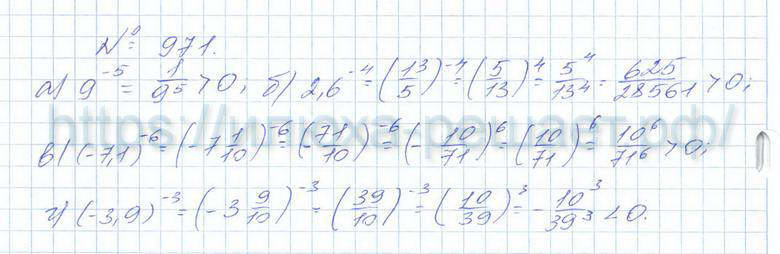 № 971.
а) 9^-5 = 1/9^5 > 0; б) 2,6^-4 = (13/5)^-4 = (5/13)^4 = 5^4/13^4 = 625/28561 > 0;
в) (-7,1)^-6 = (-7 1/10)^-6 = (-71/10)^-6 = (-10/71)^6 = (10/71)^6 = 10^6/71^6 > 0;
г) (-3,9)^-3 = (-3 9/10)^-3 = (39/10)^-3 = (10/39)^3 = -10^3/39^3 < 0.